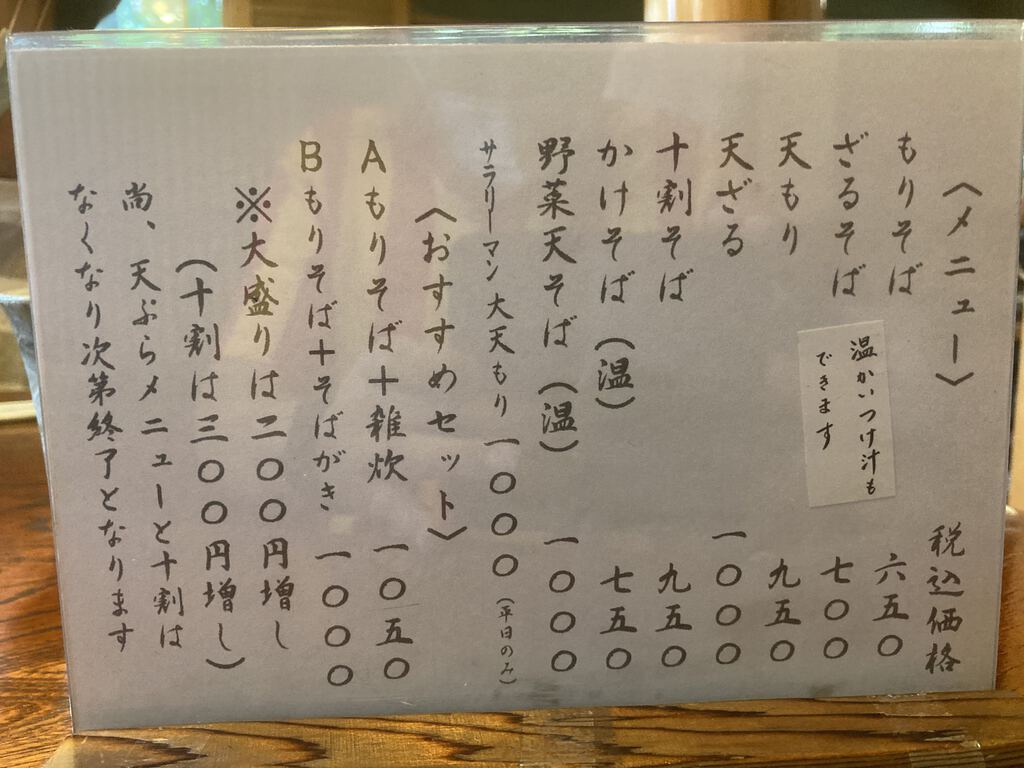 〈メニュー〉 税込価格
もりそば 六五〇
ざるそば 七〇〇
温かいつけ汁も
できます
天もり 九五〇
天ざる 一〇〇〇
十割そば 九五〇
かけそば(温) 七五〇
野菜天そば(温) 一〇〇〇
サラリーマン 大天もり 一〇〇〇(平日のみ)
〈おすすめセット〉
Aもりそば+雑炊 一〇五〇
Bもりそば+そばがき 一〇〇〇
※大盛りは二〇〇円増し
(十割は三〇〇円増し)
尚、天ぷらメニューと十割は
なくなり次第終了となります